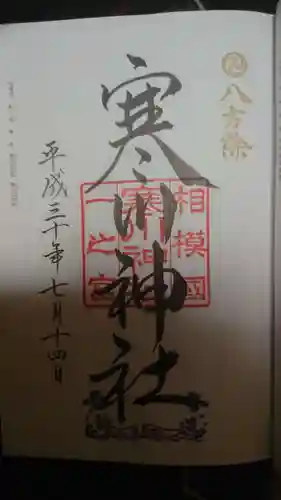 八方除
寒川神社
相模國
寒川神社
一之宮
平成三十年七月十四日